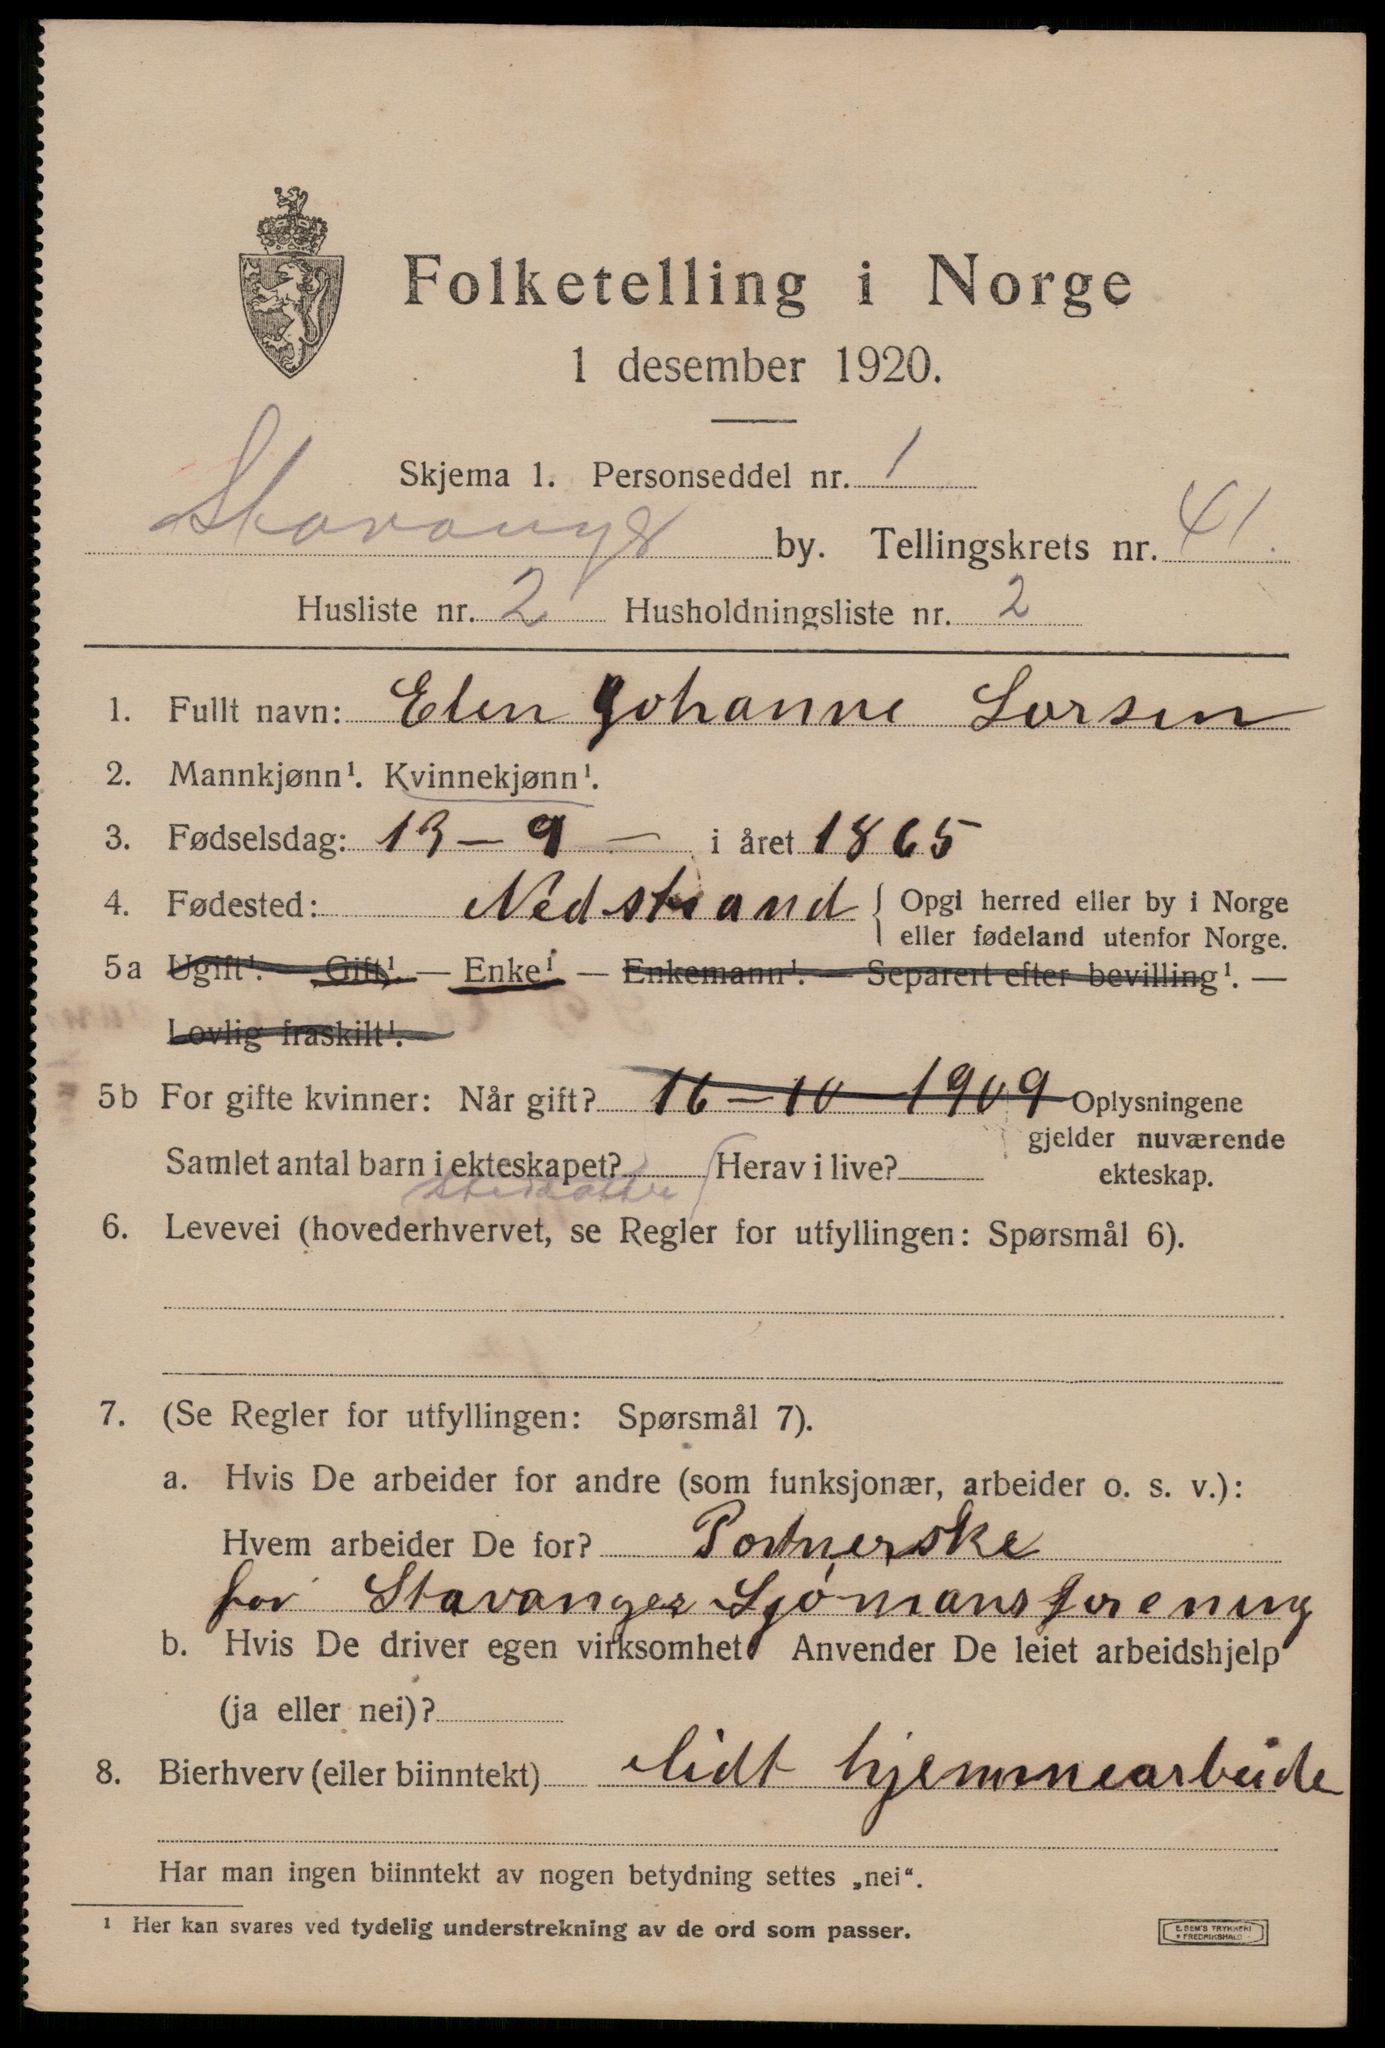 Folketelling i Norge
1 desember 1920.
Skjema 1. Personseddel nr. 1
Stavanger by. Tellingskrets nr. 41.
Husliste nr. 2 Husholdningsliste nr. 2
1. Fullt navn: Elen Johanne Larsen
2. Mannkjønn¹. Kvinnekjønn¹.
3. Fødselsdag: 13 – 9 – i året 1865
4. Fødested: Nedstrand { Opgi herred eller by i Norge
eller fødeland utenfor Norge.
5a Ugift¹. — Gift¹. — Enke¹ — Enkemann¹. — Separert efter bevilling¹. —
Lovlig fraskilt¹.
5b For gifte kvinner: Når gift? 16 – 10 – 1909 Oplysningene
gjelder nuværende
ekteskap.
Samlet antal barn i ekteskapet? Herav i live?
6. Levevei (hovederhvervet, se Regler for utfyllingen: Spørsmål 6).
7. (Se Regler for utfyllingen: Spørsmål 7).
a. Hvis De arbeider for andre (som funksjonær, arbeider o. s. v.):
Hvem arbeider De for? Portnerske
for Stavanger Sjømansforening
b. Hvis De driver egen virksomhet: Anvender De leiet arbeidshjelp
(ja eller nei)?
8. Bierhverv (eller biinntekt) lidt hjemmearbeide
Har man ingen biinntekt av nogen betydning settes „nei“.
¹ Her kan svares ved tydelig understrekning av de ord som passer.
E. SEM'S TRYKKERI
• FREDRIKSHALD •